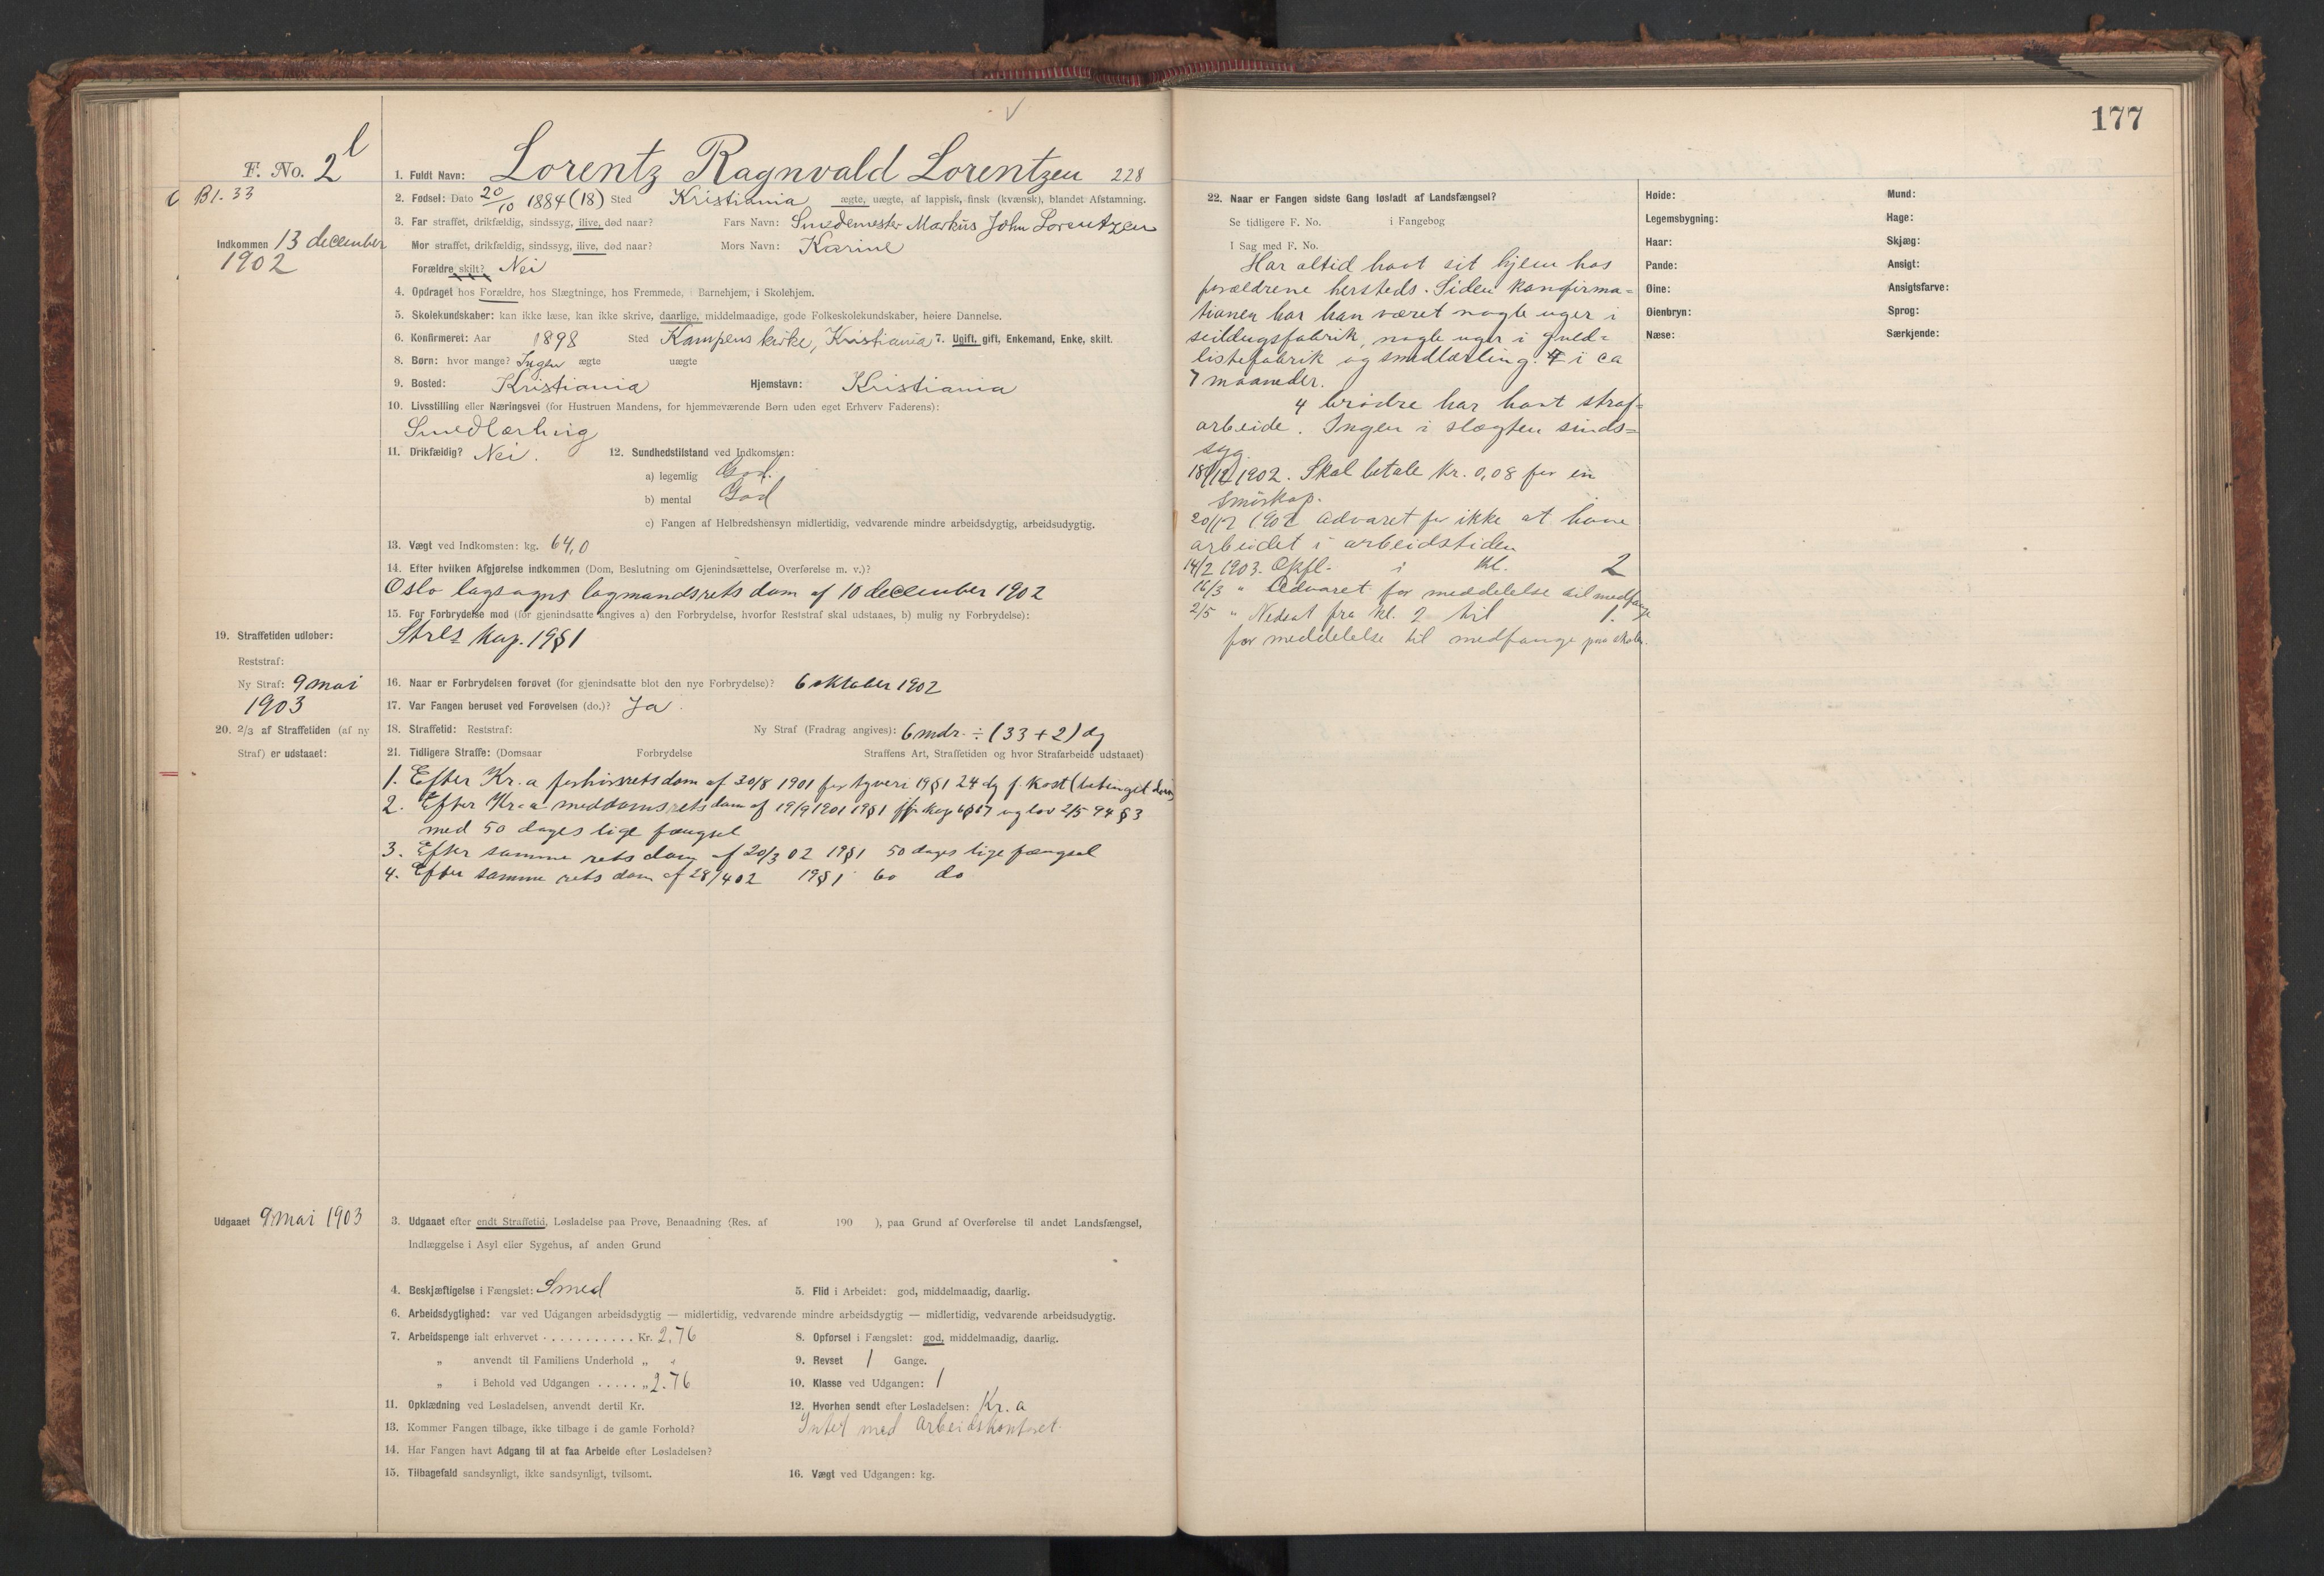 177
F. No. 2 l
Bl. 33
Indkommen 13 december
1902
1. Fuldt Navn: Lorentz Ragnvald Lorentzen 228
2. Fødsel: Dato 20/10 1884 (18) Sted Kristiania ægte, uægte, af lappisk, finsk (kvænsk), blandet Afstamning.
3. Far straffet, drikfældig, sindssyg, ilive, død naar? Fars Navn: Smedemester Markus John Lorentzen
Mor straffet, drikfældig, sindssyg, ilive, død naar? Mors Navn: Karine
Forældre skilt? Nei
4. Opdraget hos Forældre, hos Slægtninge, hos Fremmede, i Barnehjem, i Skolehjem.
5. Skolekundskaber: kan ikke læse, kan ikke skrive, daarlige, middelmaadige, gode Folkeskolekundskaber, høiere Dannelse.
6. Konfirmeret: Aar 1898 Sted Kampens kirke, Kristiania 7. Ugift, gift, Enkemand, Enke, skilt.
8. Børn: hvor mange? Ingen ægte uægte
9. Bosted: Kristiania Hjemstavn: Kristiania
10. Livsstilling eller Næringsvei (for Hustruen Mandens, for hjemmeværende Børn uden eget Erhverv Faderens):
Smedlærling
11. Drikfældig? Nei. 12. Sundhedstilstand ved Indkomsten:
a) legemlig God.
b) mental God
c) Fangen af Helbredshensyn midlertidig, vedvarende mindre arbeidsdygtig, arbeidsudygtig.
13. Vægt ved Indkomsten: kg. 64,0
14. Efter hvilken Afgjørelse indkommen (Dom, Beslutning om Gjenindsættelse, Overførelse m. v.)?
Oslo lagsogns lagmandsrets dom af 10 december 1902
15. For Forbrydelse mod (for gjenindsatte angives a) den Forbrydelse, hvorfor Reststraf skal udstaaes, b) mulig ny Forbrydelse):
Strls Kap. 19 § 1
19. Straffetiden udløber:
Reststraf:
Ny Straf: 9 mai
1903
16. Naar er Forbrydelsen forøvet (for gjenindsatte blot den nye Forbrydelse)? 6 oktober 1902
17. Var Fangen beruset ved Forøvelsen (do.)? Ja.
20. 2/3 af Straffetiden (af ny
Straf) er udstaaet:
18. Straffetid: Reststraf: Ny Straf (Fradrag angives): 6 mdr. ÷ (33 + 2) dg
21. Tidligere Straffe: (Domsaar Forbrydelse Straffens Art, Straffetiden og hvor Strafarbeide udstaaet)
1. Efter Kr.a forhørsrets dom af 30/8 1901 for tyveri 19 § 1 24 dg f. Kost (betinget dom)
2. Efter Kr.a meddomsrets dom af 19/9 1901 19 § 1 jfr. Kap 6 § 17 og lov 2/5 94 § 3
med 50 dages lige fængsel
3. Efter samme rets dom af 20/3 02 19 § 1 50 dages lige fængsel
4. Efter samme rets dom af 28/4 02 19 § 1 60 do
Udgaaet 9. mai 1903
3. Udgaaet efter endt Straffetid, Løsladelse paa Prøve, Benaadning (Res. af 190 ), paa Grund af Overførelse til andet Landsfængsel,
Indlæggelse i Asyl eller Sygehus, af anden Grund
4. Beskjæftigelse i Fængslet: Smed 5. Flid i Arbeidet: god, middelmaadig, daarlig.
6. Arbeidsdygtighed: var ved Udgangen arbeidsdygtig — midlertidig, vedvarende mindre arbeidsdygtig — midlertidig, vedvarende arbeidsudygtig.
7. Arbeidspenge ialt erhvervet . . . . . . . . . . . Kr. 2.76 8. Opførsel i Fængslet: god, middelmaadig, daarlig.
„ anvendt til Familiens Underhold „ „ 9. Revset 1 Gange.
„ i Behold ved Udgangen . . . . . „ 2.76 10. Klasse ved Udgangen: 1
11. Opklædning ved Løsladelsen, anvendt dertil Kr. 12. Hvorhen sendt efter Løsladelsen: Kr.a
13. Kommer Fangen tilbage, ikke tilbage i de gamle Forhold? Intet med arbeidskontoret.
14. Har Fangen havt Adgang til at faa Arbeide efter Løsladelsen?
15. Tilbagefald sandsynligt, ikke sandsynligt, tvilsomt. 16. Vægt ved Udgangen: kg.
22. Naar er Fangen sidste Gang løsladt af Landsfængsel?
Se tidligere F. No. i Fangebog
I Sag med F. No.
Har altid havt sit hjem hos
forældrene hersteds. Siden konfirma=
tionen har han været nogle uger i
seildugsfabrik, nogle uger i guld=
listefabrik og smedlærling i ca
7 maaneder.
4 brødre har havt straf=
arbeide. Ingen i slægten sinds=
syg.
18/12 1902. Skal betale Kr. 0,08 for en
smørkop.
20/12 1902 advaret for ikke at have
arbeidet i arbeidstiden
14/2 1903. Opfl. i Kl. 2
16/3 „ Advaret for meddelelse til medfange
2/5 „ Nedsat fra kl. 2 til 1.
for meddelelse til medfange paa skolen.
Høide: Mund:
Legemsbygning: Hage:
Haar: Skjæg:
Pande: Ansigt:
Øine: Ansigtsfarve:
Øienbryn: Sprog:
Næse: Særkjende: